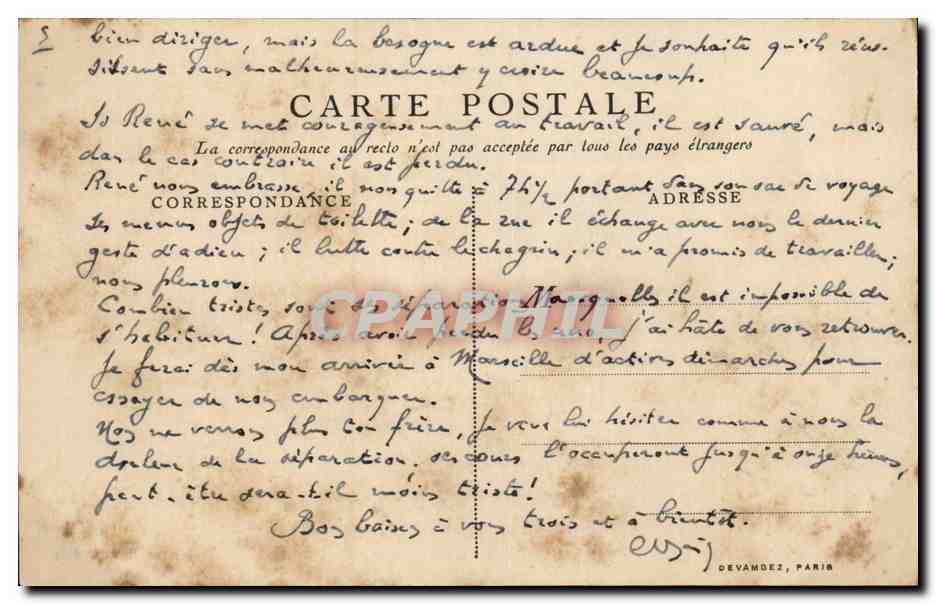 5 bien diriger, mais la besogne est ardue et je souhaite qu'ils réus-
sissent sans malheureusement y croire beaucoup.
CARTE POSTALE
Si René se met courageusement au travail, il est sauvé, mais
La correspondance au recto n'est pas acceptée par tous les pays étrangers
dans le cas contraire il est perdu.
René nous embrasse, il nous quitte à 7h½ portant dans son sac de voyage
CORRESPONDANCE
ADRESSE
ses menus objets de toilette; de la rue il échange avec nous le dernier
geste d'adieu; il lutte contre le chagrin; il m'a promis de travailler;
nous pleurons.
Combien tristes sont ces séparations il est impossible de
s'habituer! Après avoir perdu les uns, j'ai hâte de vous retrouver.
Je ferai dès mon arrivée à Marseille d'actives démarches pour
essayer de nous embarquer.
Nous ne verrons plus ton frère, je veux lui éviter comme à nous la
douleur de la séparation. ses cours l'occuperont jusqu'à onze heures,
peut-être sera-t-il moins triste!
Bons baisers à vous trois et à bientôt.
DEVAMBEZ, PARIS
CPAPHIL